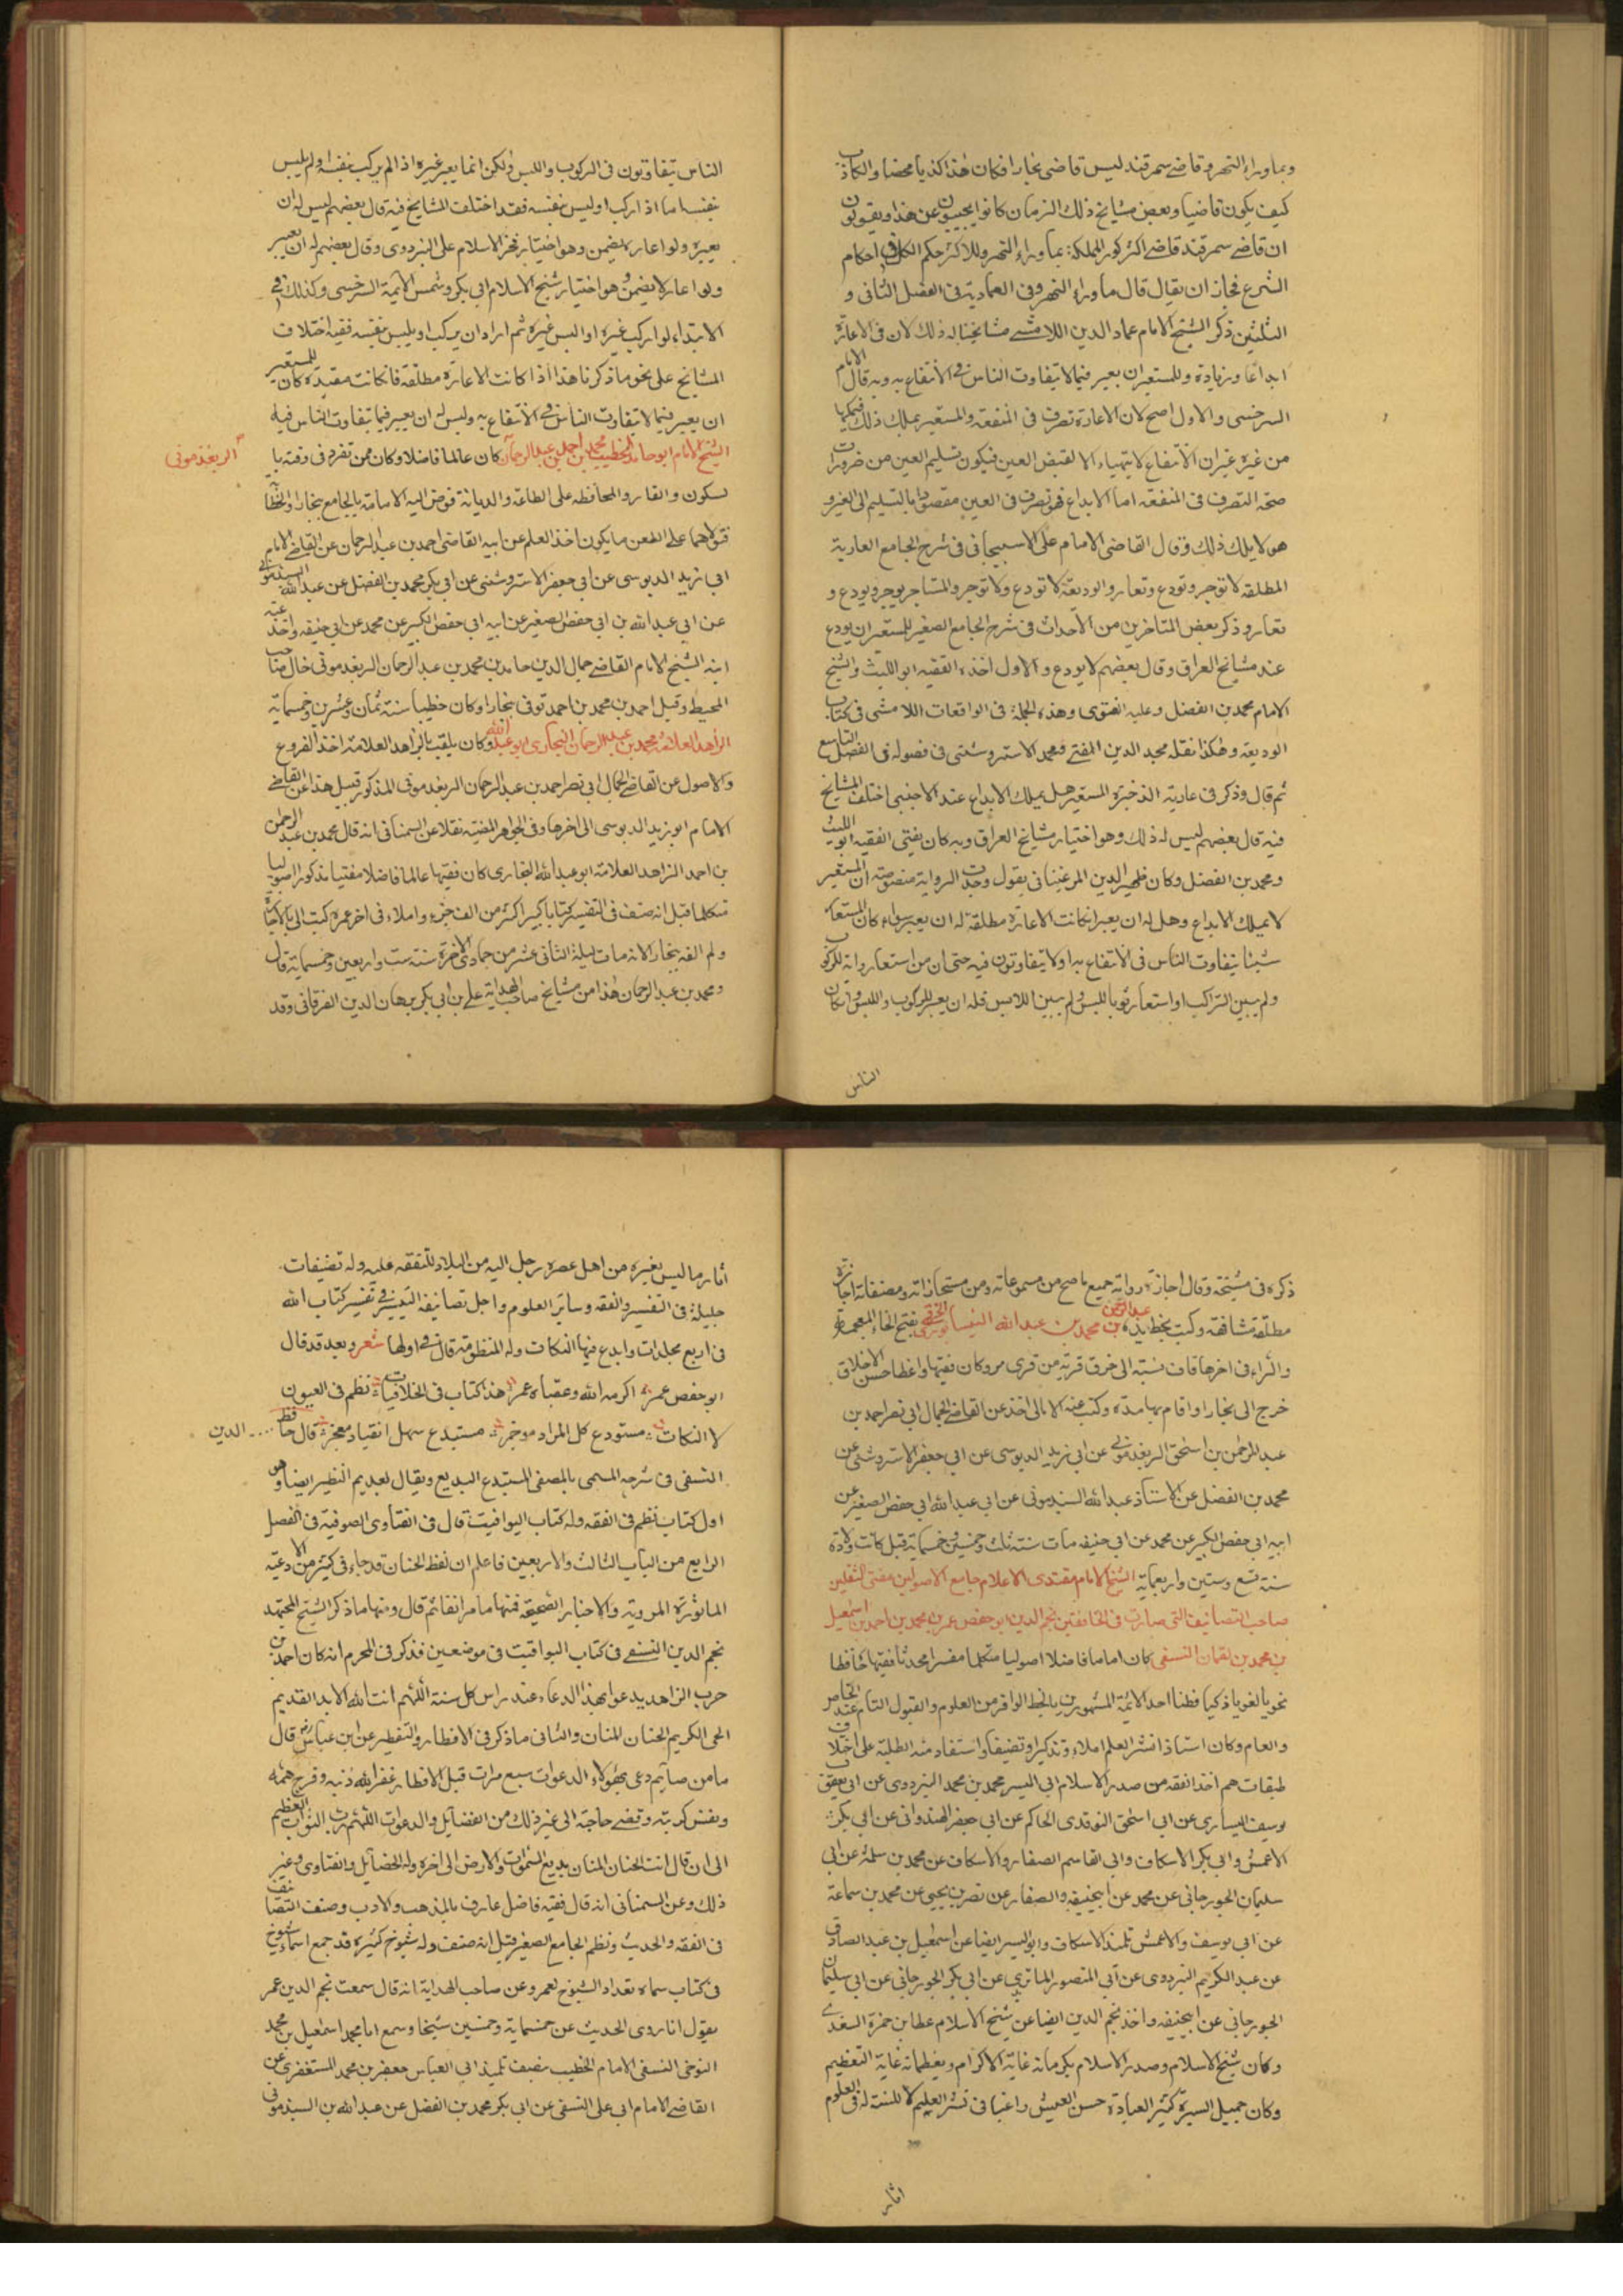 وبما وراء النهر وقاضى سمرقند ليس قاضى بخارا فكان هذا كذبا محضا والكاذب
كيف يكون قاضيا وبعض مشايخ ذلك الزمان كانوا يجيبون عن هذا ويقولون
ان قاضى سمرقند قاضى اكثر كور المملكة بما وراء النهر وللاكثر حكم الكل فى احكام
الشرع فجاز ان يقال قال ما وراء النهر وفى العمادية فى الفصل الثانى و
الثلثين ذكر الشيخ الامام عماد الدين اللامشى مشايخنا له ذلك لان فى الاعارة
ايداعا وزيادة وللمستعير ان يعير فيما لا يتفاوت الناس فى الانتفاع به وبه قال الامام
السرخسى والاول اصح لان الاعارة تصرف فى المنفعة والمستعير يملك ذلك فيملكها
من غيره غير ان الانتفاع لا يتهياء الا لقبض العين فيكون تسليم العين من ضرورات
صحة التصرف فى المنفعة اما الايداع فهو تصرف فى العين مقصودا بالتسليم الى الغير و
هو لا يملك ذلك وقال القاضى الامام على الاسبيجابى فى شرح الجامع العارية
المطلقة لا توجر وتودع وتعار والوديعة لا تودع ولا توجر والمستاجر يوجر ويودع و
تعار وذكر بعض المتاخرين من الاحداث فى شرح الجامع الصغير للمستعير ان يودع
عند مشايخ العراق وقال بعضهم لا يودع والاول اخذه الفقيه ابو الليث والشيخ
الامام محمد بن الفضل وعليه الفتوى وهذه الجملة فى الواقعات اللامشى فى كتاب
الوديعة وهكذا نقله مجد الدين المفتى محمد الاستروشنى فى فصوله فى الفصل التاسع
ثم قال وذكر فى عارية الذخيرة المستعير هل يملك الايداع عند الاجنبى اختلف المشايخ
فيه قال بعضهم ليس له ذلك وهو اختيار مشايخ العراق وبه كان يفتى الفقيه ابو الليث
ومحمد بن الفضل وكان ظهير الدين المرغينانى يقول وجدت الرواية منصوصة ان المستعير
لا يملك الايداع وهل له ان يعير ان كانت الاعارة مطلقة له ان يعير سواء كان المستعار
شيئا يتفاوت الناس فى الانتفاع به او لا يتفاوتون فيه حتى ان من استعار دابة للركوب
ولم يبين الراكب او استعار ثوبا للبس ولم يبين اللابس فله ان يعير للركوب واللبس وان كان
الناس
الناس يتفاوتون فى الركوب واللبس ولكن انما يعير غيره اذا لم يركب بنفسه او لم يلبس
بنفسه اما اذا ركب او لبس بنفسه فقد اختلف المشايخ فيه قال بعضهم ليس له ان
يعيره ولو اعار يضمن وهو اختيار فخر الاسلام على البزدوى وقال بعضهم له ان يعير
ولو اعار لا يضمن وهو اختيار شيخ الاسلام ابى بكر وشمس الائمة السرخسى وكذلك فى
الابتداء لو اركب غيره او البس غيره ثم اراد ان يركب او يلبس بنفسه ففيه اختلاف
المشايخ على نحو ما ذكرنا هذا اذا كانت الاعارة مطلقة فان كانت مقيدة كان للمستعير
ان يعير فيما لا يتفاوت الناس فى الانتفاع به وليس له ان يعير فيما يتفاوت الناس فيه
الشيخ الامام ابو حامد الخطيب محمد بن احمد بن عبد الرحمان كان عالما فاضلا وكان ممن تفرد فى وقته با
الريغذمونى
لسكون والقار والمحافظة على الطاعة والديانة فوض اليه الامامة بالجامع ببخارا والخطا
فتولاهما على امعن ما يكون اخذ العلم عن ابيه القاضى احمد بن عبد الرحمان عن القاضى الامام
ابى زيد الدبوسى عن ابى جعفر الاستروشنى عن ابى بكر محمد بن الفضل عن عبد الله السبذمونى
عن ابى عبد الله بن ابى حفص الصغير عن ابيه ابى حفص الكبير عن محمد عن ابى حنيفة واخذ عنه
ابنه الشيخ الامام القاضى جمال الدين حامد بن محمد بن عبد الرحمان الريغدمونى خال صاحب
المحيط وقيل احمد بن محمد بن احمد توفى ببخارا وكان خطيبا سنة ثمان وعشرين وخمسماية
الزاهد العلامة محمد بن عبد الرحمان البخارى ابو عبد الله وكان يلقب بالزاهد العلامة اخذ الفروع
والاصول عن القاضى الجمال ابى نصر احمد بن عبد الرحمان الريغدمونى المذكور قبيل هذا عن القاضى
الامام ابو زيد الدبوسى الى اخرها وفى الجواهر المضية نقلا عن السمنانى انه قال محمد بن عبد الرحمن
بن احمد الزاهد العلامة ابو عبد الله البخارى كان فقيها عالما فاضلا مفتيا مذكورا اصوليا
متكلما قيل انه صنف فى التفسير كتابا كبيرا اكثر من الف جزء واملاء فى اخر عمره كتب الى بالاجازة
ولم القه ببخارا لانه مات ليلة الثانى عشر من جمادى الاخرة سنة ست واربعين وخمسماية قال
ومحمد بن عبد الرحمان هذا من مشايخ صاحب الهداية على بن ابى بكر برهان الدين الفرقانى وقد
ذكره فى مشيخته وقال اجازة رواية جميع ما صح من مسموعاته ومن مستجازاته ومصنفاته اجازة
مطلقة مشافهة وكتب بخط يده عبد الرحمن بن محمد بن عبد الله النيسابورى الخرقى بفتح الخاء المعجمة
والراء فى اخرها قاف نسبته الى خرق قرية من قرى مرو كان فقيها واعظا حسن الاخلاق
خرج الى بخارا واقام بها مدة وكتب عنه الامالى اخذ عن القاضى الجمال ابى نصر احمد بن
عبد الرحمن بن اسحق الريغدمونى عن ابى زيد الدبوسى عن ابى جعفر الاستروشنى عن
محمد بن الفضل عن الاستاذ عبد الله السبذمونى عن ابى عبد الله ابى حفص الصغير عن
ابيه ابى حفص الكبير عن محمد عن ابى حنيفه مات سنة ثلث وخمسين وخمسماية قيل كانت ولادته
سنة تسع وستين واربعماية الشيخ الامام مقتدى الاعلام جامع الاصولين مفتى الثقلين
صاحب التصانيف التى صارت فى الخافقين نجم الدين ابو حفص عمر بن محمد بن احمد بن اسمعيل
بن محمد بن لقمان النسفى كان اماما فاضلا اصوليا متكلما مفسرا محدثا فقيها حافظا
نحويا لغويا ذكيا فطنا احد الائمة المشهورين بالحظ الوافر من العلوم والقبول التام عند الخاص
والعام وكان استاذا نشر العلم املاء وتذكيرا وتصنيفا واستفاد منه الطلبة على اختلاف
طبقاتهم اخذ الفقه من صدر الاسلام ابى اليسر محمد بن محمد البزدوى عن ابى يعقوب
يوسف السيارى عن ابى اسحق النوقدى الحاكم عن ابى جعفر الهندوانى عن ابى بكر
الاعمش وابى بكر الاسكاف وابى القاسم الصفار والاسكاف عن محمد بن سلمة عن ابى
سليمان الجوزجانى عن محمد عن ابيحنيفه والصفار عن نصر بن يحيى عن محمد بن سماعة
عن ابى يوسف والاعمش تلميذ الاسكاف وابو اليسر ايضا عن اسمعيل بن عبد الصادق
عن عبد الكريم البزدوى عن ابى المنصور الماتريدى عن ابى بكر الجوزجانى عن ابى سليمان
الجوزجانى عن ابيحنيفه واخذ نجم الدين ايضا عن شيخ الاسلام عطا بن حمزة السغدى
وكان شيخ الاسلام وصدر الاسلام يكرمانه غاية الاكرام ويعظمانه غاية التعظيم
وكان جميل السيرة كثير العبادة حسن العيش راغبا فى نشر العلم لا للمنة له فى العلوم
اثار
اثار ما ليس لغيره من اهل عصره يرحل اليه من البلاد للتفقه عليه وله تصنيفات
جليلة فى التفسير والفقه وساير العلوم واجل تصانيفه التيسير فى تفسير كتاب الله
فى اربع مجلدات وابدع فيها النكات وله المنظومة قال فى اولها شعر وبعد قد قال
ابو حفص عمر اكرمه الله وعقباه عمر هذا كتاب فى الخلافيات نظم فى العيون
لا النكات مستودع كل المراد موجز مستبدع سهل انقياد معجز قال حافظ الدين
النسفى فى شرحه المسمى بالمصفى المستبدع البديع ويقال لعديم النظير ايضا وهو
اول كتاب نظم فى الفقه وله كتاب اليواقيت قال فى الفتاوى الصوفية فى الفصل
الرابع من الباب الثالث والاربعين فاعلم ان لفظ الحنان قد جاء فى كثير من الادعية
الماثورة المروية والاخبار الصحيحة فمنها ما مر انفا ثم قال ومنها ما ذكر الشيخ المجتهد
نجم الدين النسفى فى كتاب اليواقيت فى موضعين فذكر فى المحرم انه كان احمد بن
حرب الزاهد يدعوا بهذا الدعاء عند راس كل سنة اللهم انت الله الابد القديم
الحى الكريم الحنان المنان والثانى ما ذكر فى الافطار والتفطير عن ابن عباس رض قال
ما من صايم دعى بهؤلاء الدعوات سبع مرات قبل الافطار غفر الله ذنبه وفرج همه
ونفس كربته وقضى حاجته الى غير ذلك من الفضايل والدعوات اللهم رب النور العظيم
الى ان قال انت الحنان المنان بديع السموات والارض الى اخره وله الخصايل والفتاوى وغير
ذلك وعن السمنانى انه قال فقيه فاضل عارف بالمذهب والادب وصنف التصانيف
فى الفقه والحديث ونظم الجامع الصغير قيل انه صنف وله شيوخ كثيرة قد جمع اسماء شيوخ
فى كتاب سماه تعداد الشيوخ لعمر وعن صاحب الهداية انه قال سمعت نجم الدين عمر
يقول انا روى الحديث عن خمسماية وخمسين شيخا وسمع ابا محمد اسمعيل بن محمد
النوحى النسفى الامام الخطيب تلميذ ابى العباس جعفر بن محمد المستغفرى عن
القاضى الامام ابى على النسفى عن ابى بكر محمد بن الفضل عن عبد الله بن السبذمونى